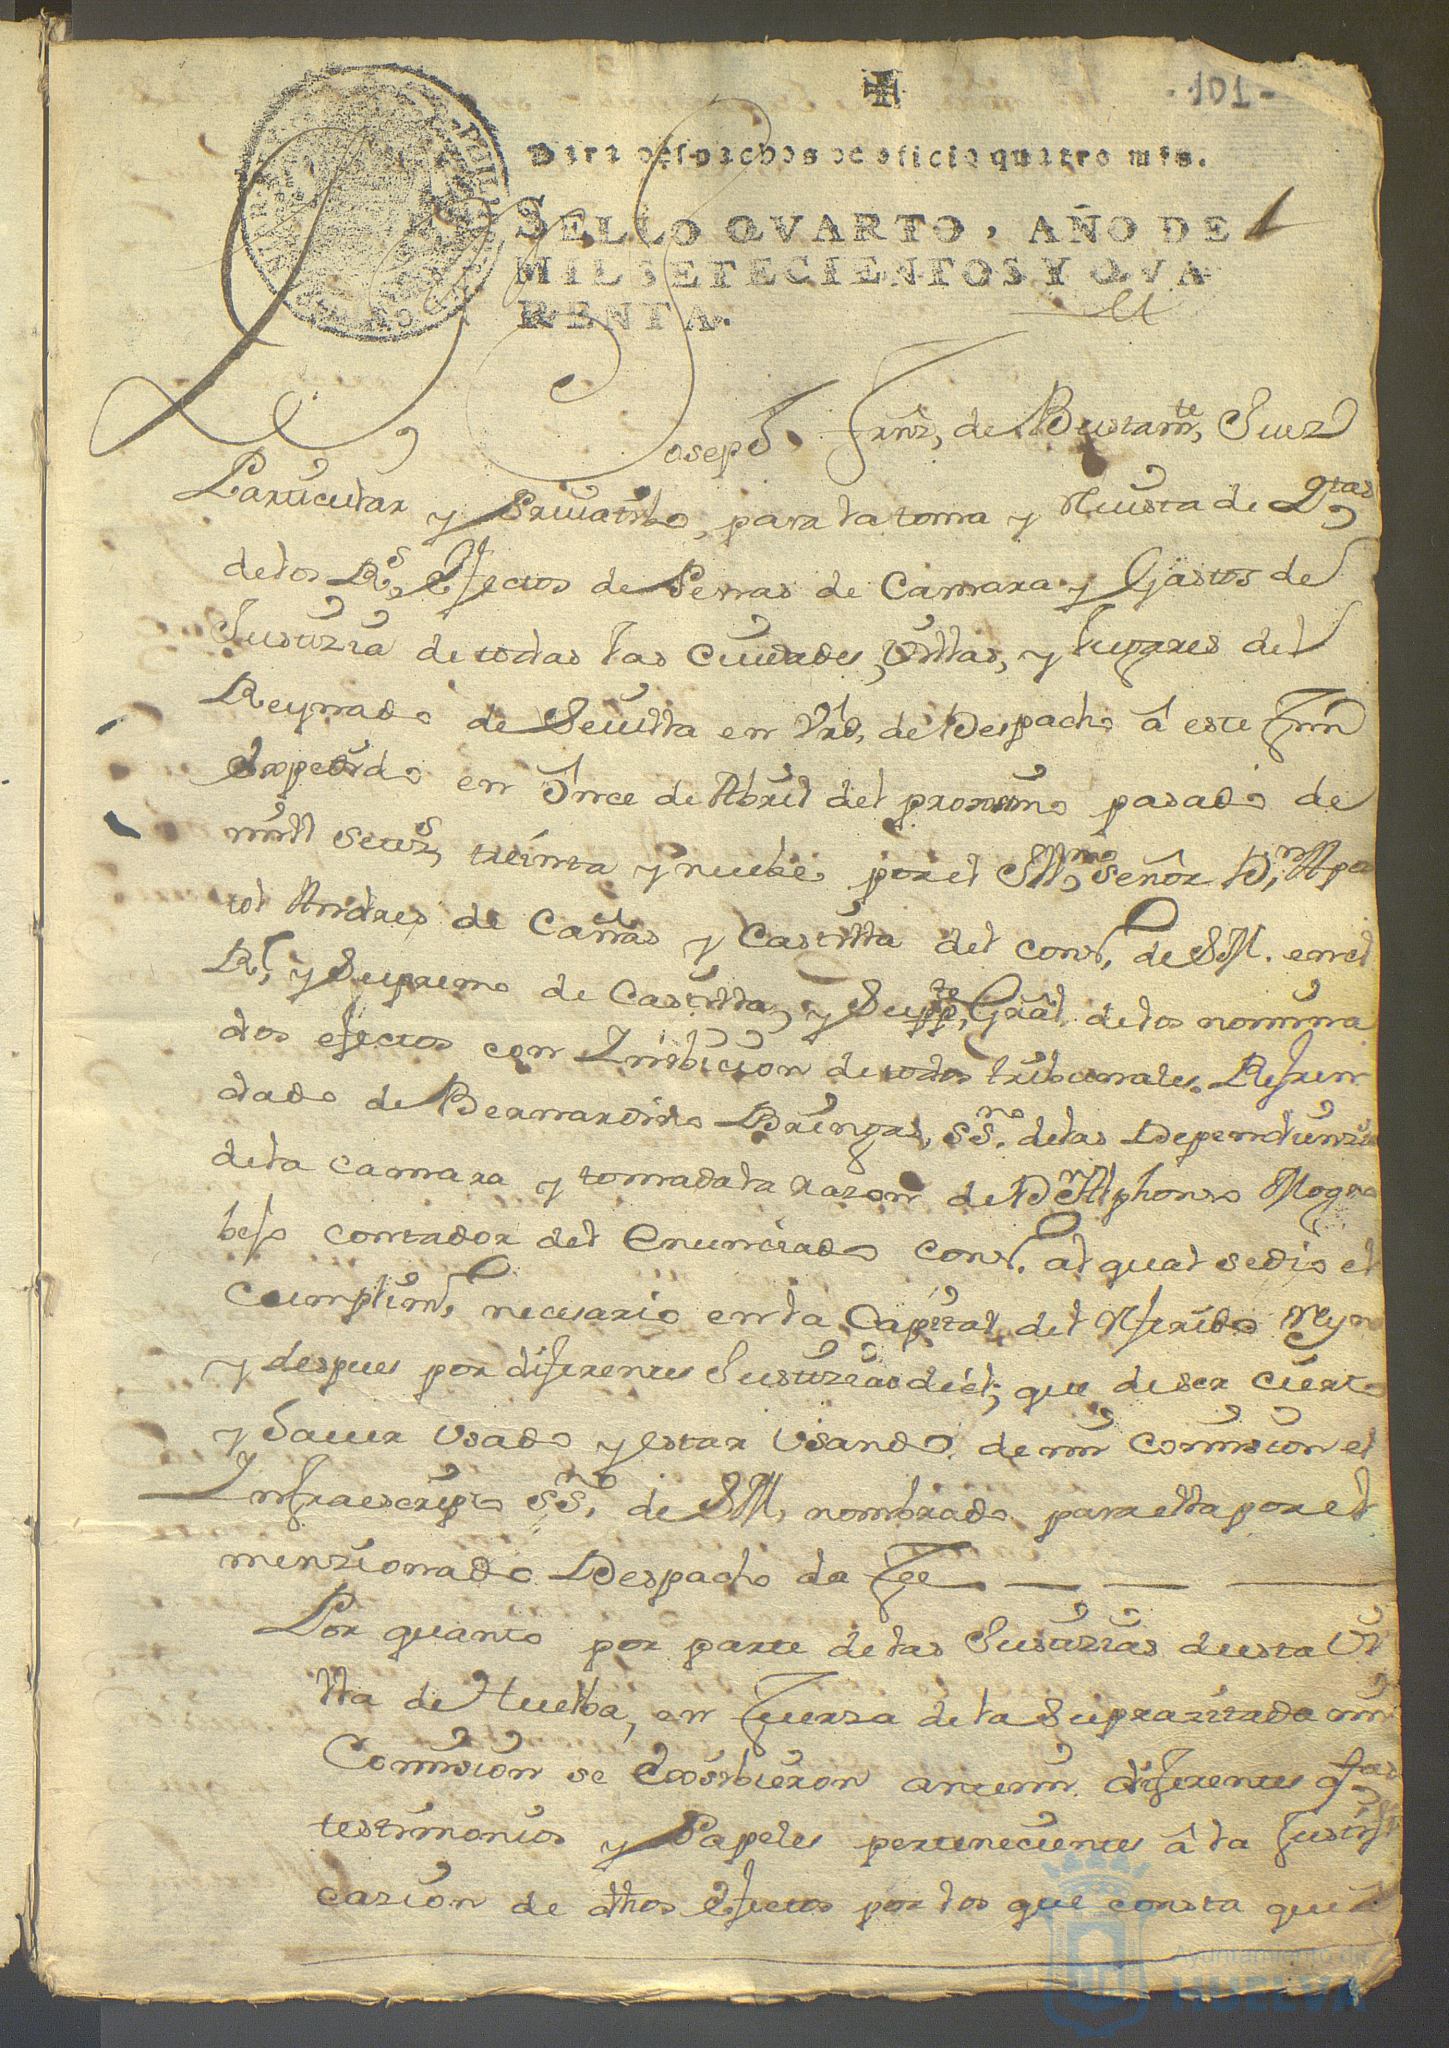 -101-
Para despachos de oficio quatro mrs.
SELLO QVARTO, AÑO DE
MIL SETECIENTOS Y QVA
RENTA.
Joseph Franz, de Bustamte, Juez
Particular y Pribatibo, para la toma y Revista de Qtas
de los Rs, Efectos de Penas de Camara y Gastos de
Justizia de todas las Ciudades, Villas, y Lugares del
Reynado de Sevilla en Vrd, de Despacho â este fin
Expedido en Once de Abril del proximo pasado de
mill Setezs, treinta y nuebe por el Illmo, Señor Dn, Apos
tol Andres de Cañas y Castilla del Cons, de S.M. en el
Rl, y Supremo de Castilla, y Suppte, Gral, de los nomina
dos efectos con Inibicion de todos tribunales. Refren
dado de Bernardino Bringas, ssno. de las Dependienzias
de la Camara y tomada la razon de Dn Alphonso Mogro
bejo Contador del Enunciado Cons. al qual se dio el
Cumplim, necesario en la Capital del Referido Reyno
y despues por diferentes Justizias de el; que de ser Cierto
y hauer Usado y estar Usando de mi Comision el
Infraescripto ssno, de S.M, nombrado para ella por el
menzionado Despacho da Fee
Por quanto por parte de las Justizias de esta Vi
lla de Huelba, en fuerza de la Supracitada mi
Comision se Exsibieron ante mi diferentes qtas,
testimonios y Papeles pertenecientes â la Justifi
cazion de dhos Efectos por los que consta que
Ayuntamiento de
HUELVA